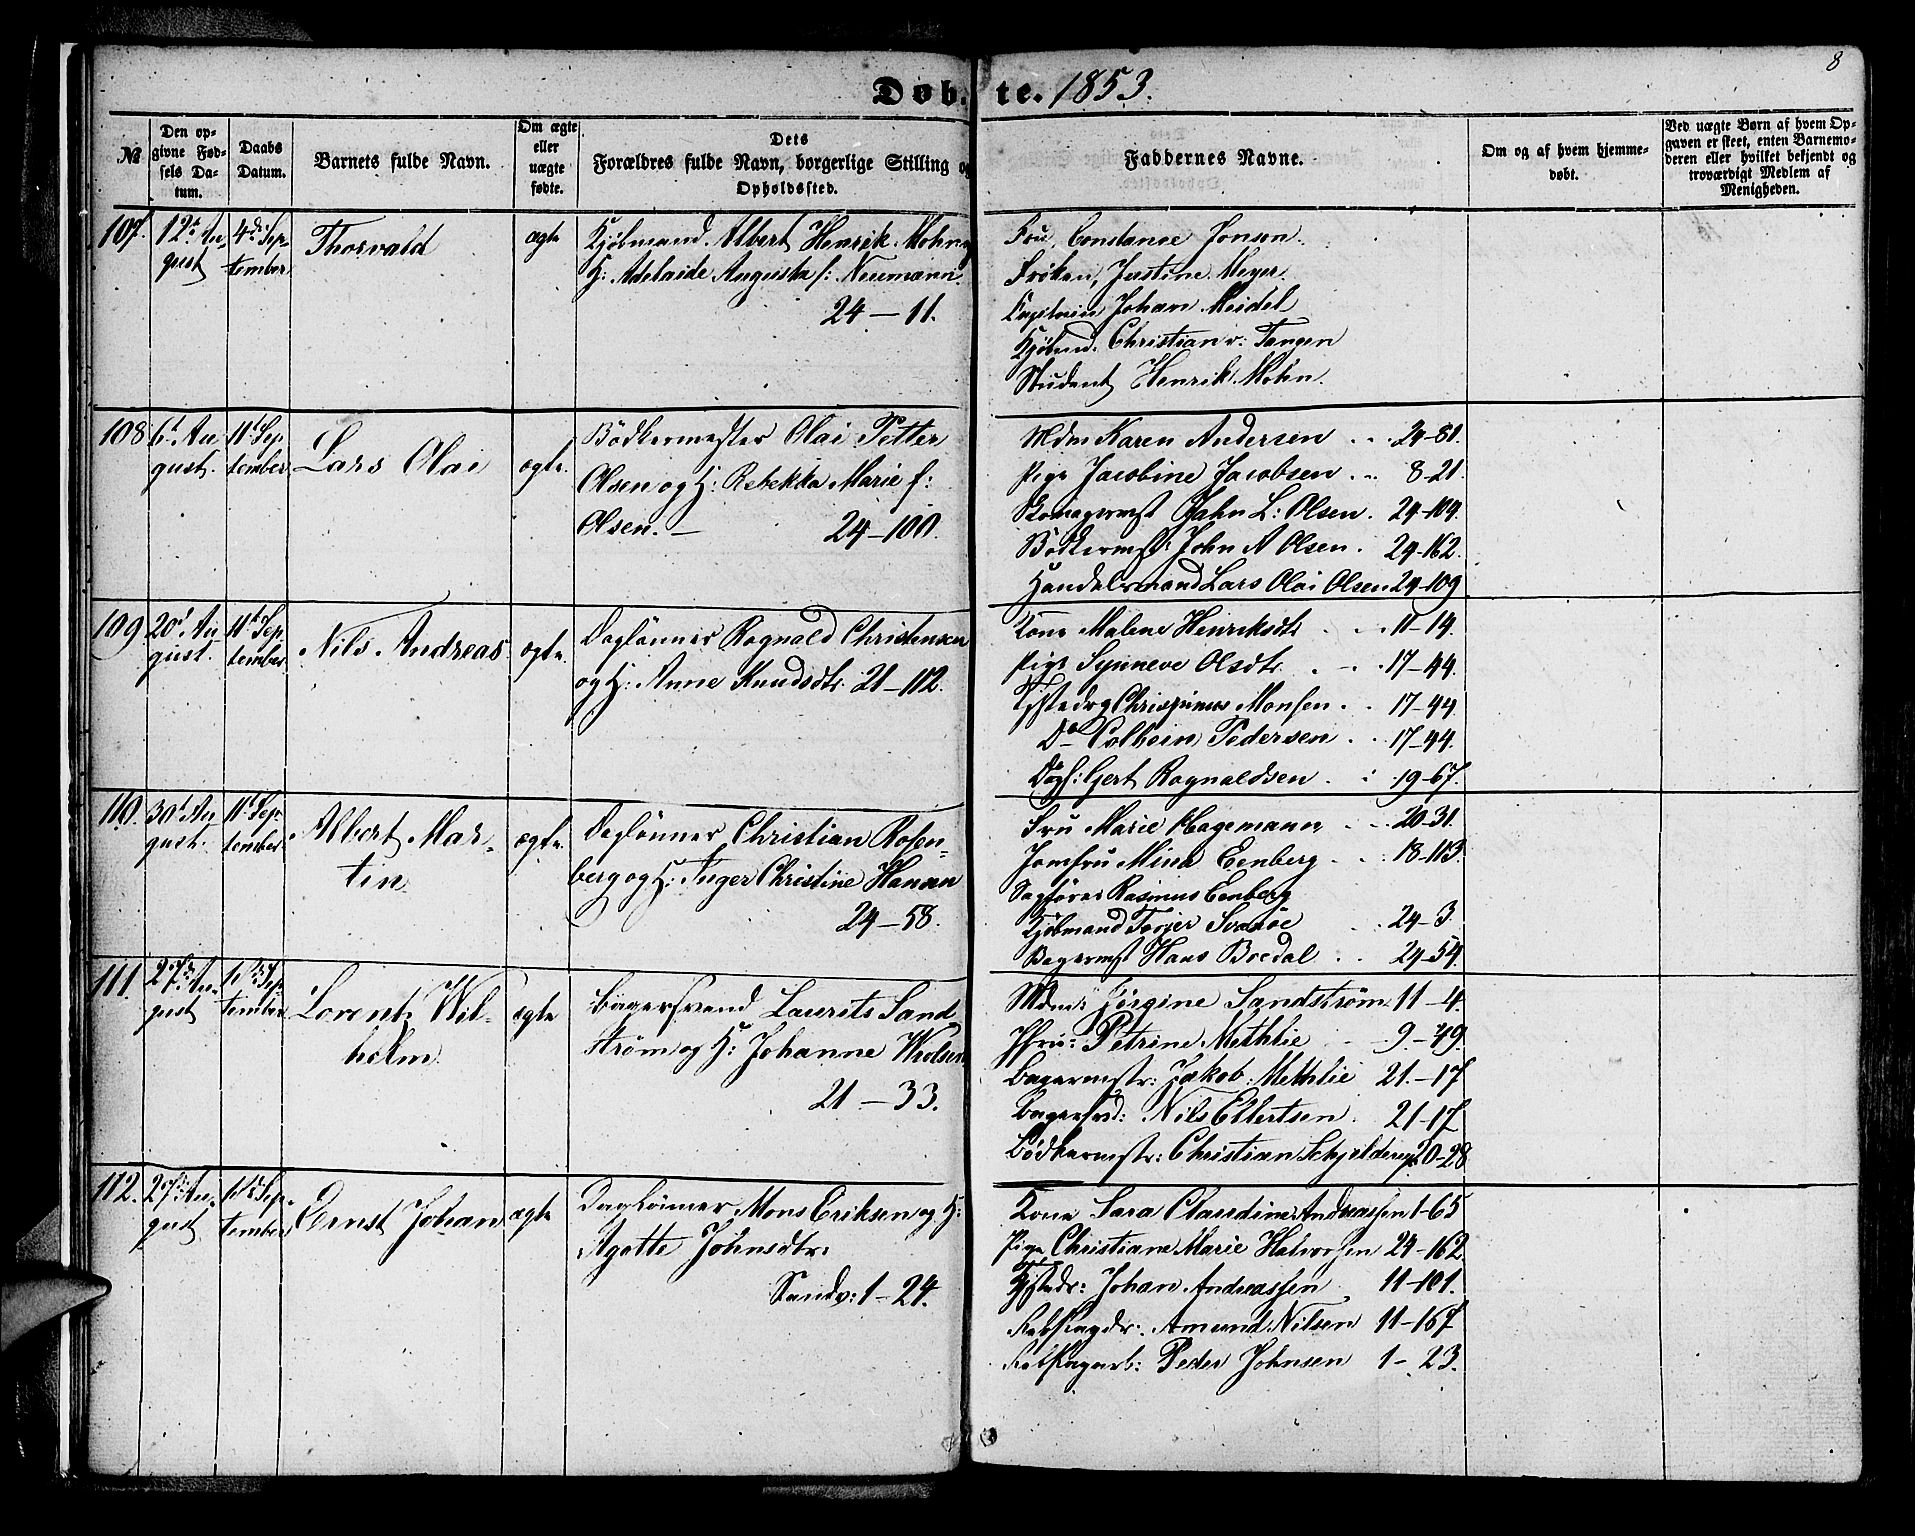 8
Døbte. 1853.
№
Den opgivne Fødsels Datum.
Daabs Datum.
Barnets fulde Navn.
Om ægte eller uægte fødte.
Dets Forældres fulde Navn, borgerlige Stilling og Opholdssted.
Faddernes Navne.
Om og af hvem hjemmedøbt.
Ved uægte Børn af hvem Opgaven er skeet, enten Barnemoderen eller hvilket bekjendt og troværdigt Medlem af Menigheden.
107.
12te August
4de September
Thorvald
ægte
Kjøbmand Albert Henrik Mohn og
H: Adelaide Augusta f: Neumann.
24 – 11.
Fru, Constance Jonson.
Frøken, Justine Meyer.
Capitain Johan Meidel
Kjøbmd: Christian v: Tangen
Student Henrik Mohn.
108
6t August.
11t September
Lars Olai
ægte.
Bødkermester Olai Petter
Olsen og H: Rebekka Marie f:
Olsen. – 24–100.
Mdm Karen Andersen . . 24–81.
Pige Jacobine Jacobsen . . 8–21.
Skomagermst John L: Olsen. 24–109.
Bødkermst: John A Olsen. 24–162.
Handelsmand Lars Olai Olsen 24–109
109
20t August.
11t September
Nils Andreas
ægte.
Daglønner Rognald Christensen
og H: Anne Knudsdtr. 21–112.
Kone Malene Henriksdt . . 11–14.
Pige Synneve Olsdtr . . 17–44.
Chrispinus Monsen . . 17–44
Do Colbein Pedersen . . 17–44.
Dagl: Gert Rognaldsen . : 19–67.
110.
30t August.
11t September
Albert Mar-
tin.
ægte.
Daglønner Christian Rosen-
berg og H: Inger Christine Hansen
24–58.
Fru Marie Hagemann . . 20–31.
Jomfru Mina Eenberg . . 18–113.
Sagfører Rasmus Eenberg
Kjøbmand Torjer Svanøe . . 24–3.
Bagermst Hans Boedal . . 24–54.
111.
27de August
11te September
Lorentz Wil-
helm.
ægte
Bagersvend Laurits Sand
strøm og H: Johanne
21 – 33.
Mdm: Jørgine Sandstrøm 11 – 4.
Jfru: Petrine Methlie 9. – 49.
Bagermstr: Jakob Methlie 21. – 17
Bagersvd: Nils Ellertsen. 21–17
Bødkermstr: Christian Schjelderup 20–28
112.
27de August
11te September
Ernst Johan
ægte
Daglønner Mons Eriksen og H:
Agotte Johnsdtr:
Sandv: 1–24.
Kone Sara Claudine Andreassen 1–65
Pige Christiane Marie Halvorsen 24–162
Johan Andreassen 11–101.
Amund Nilsen 11–167
Peder Johnsen 1 – 23.